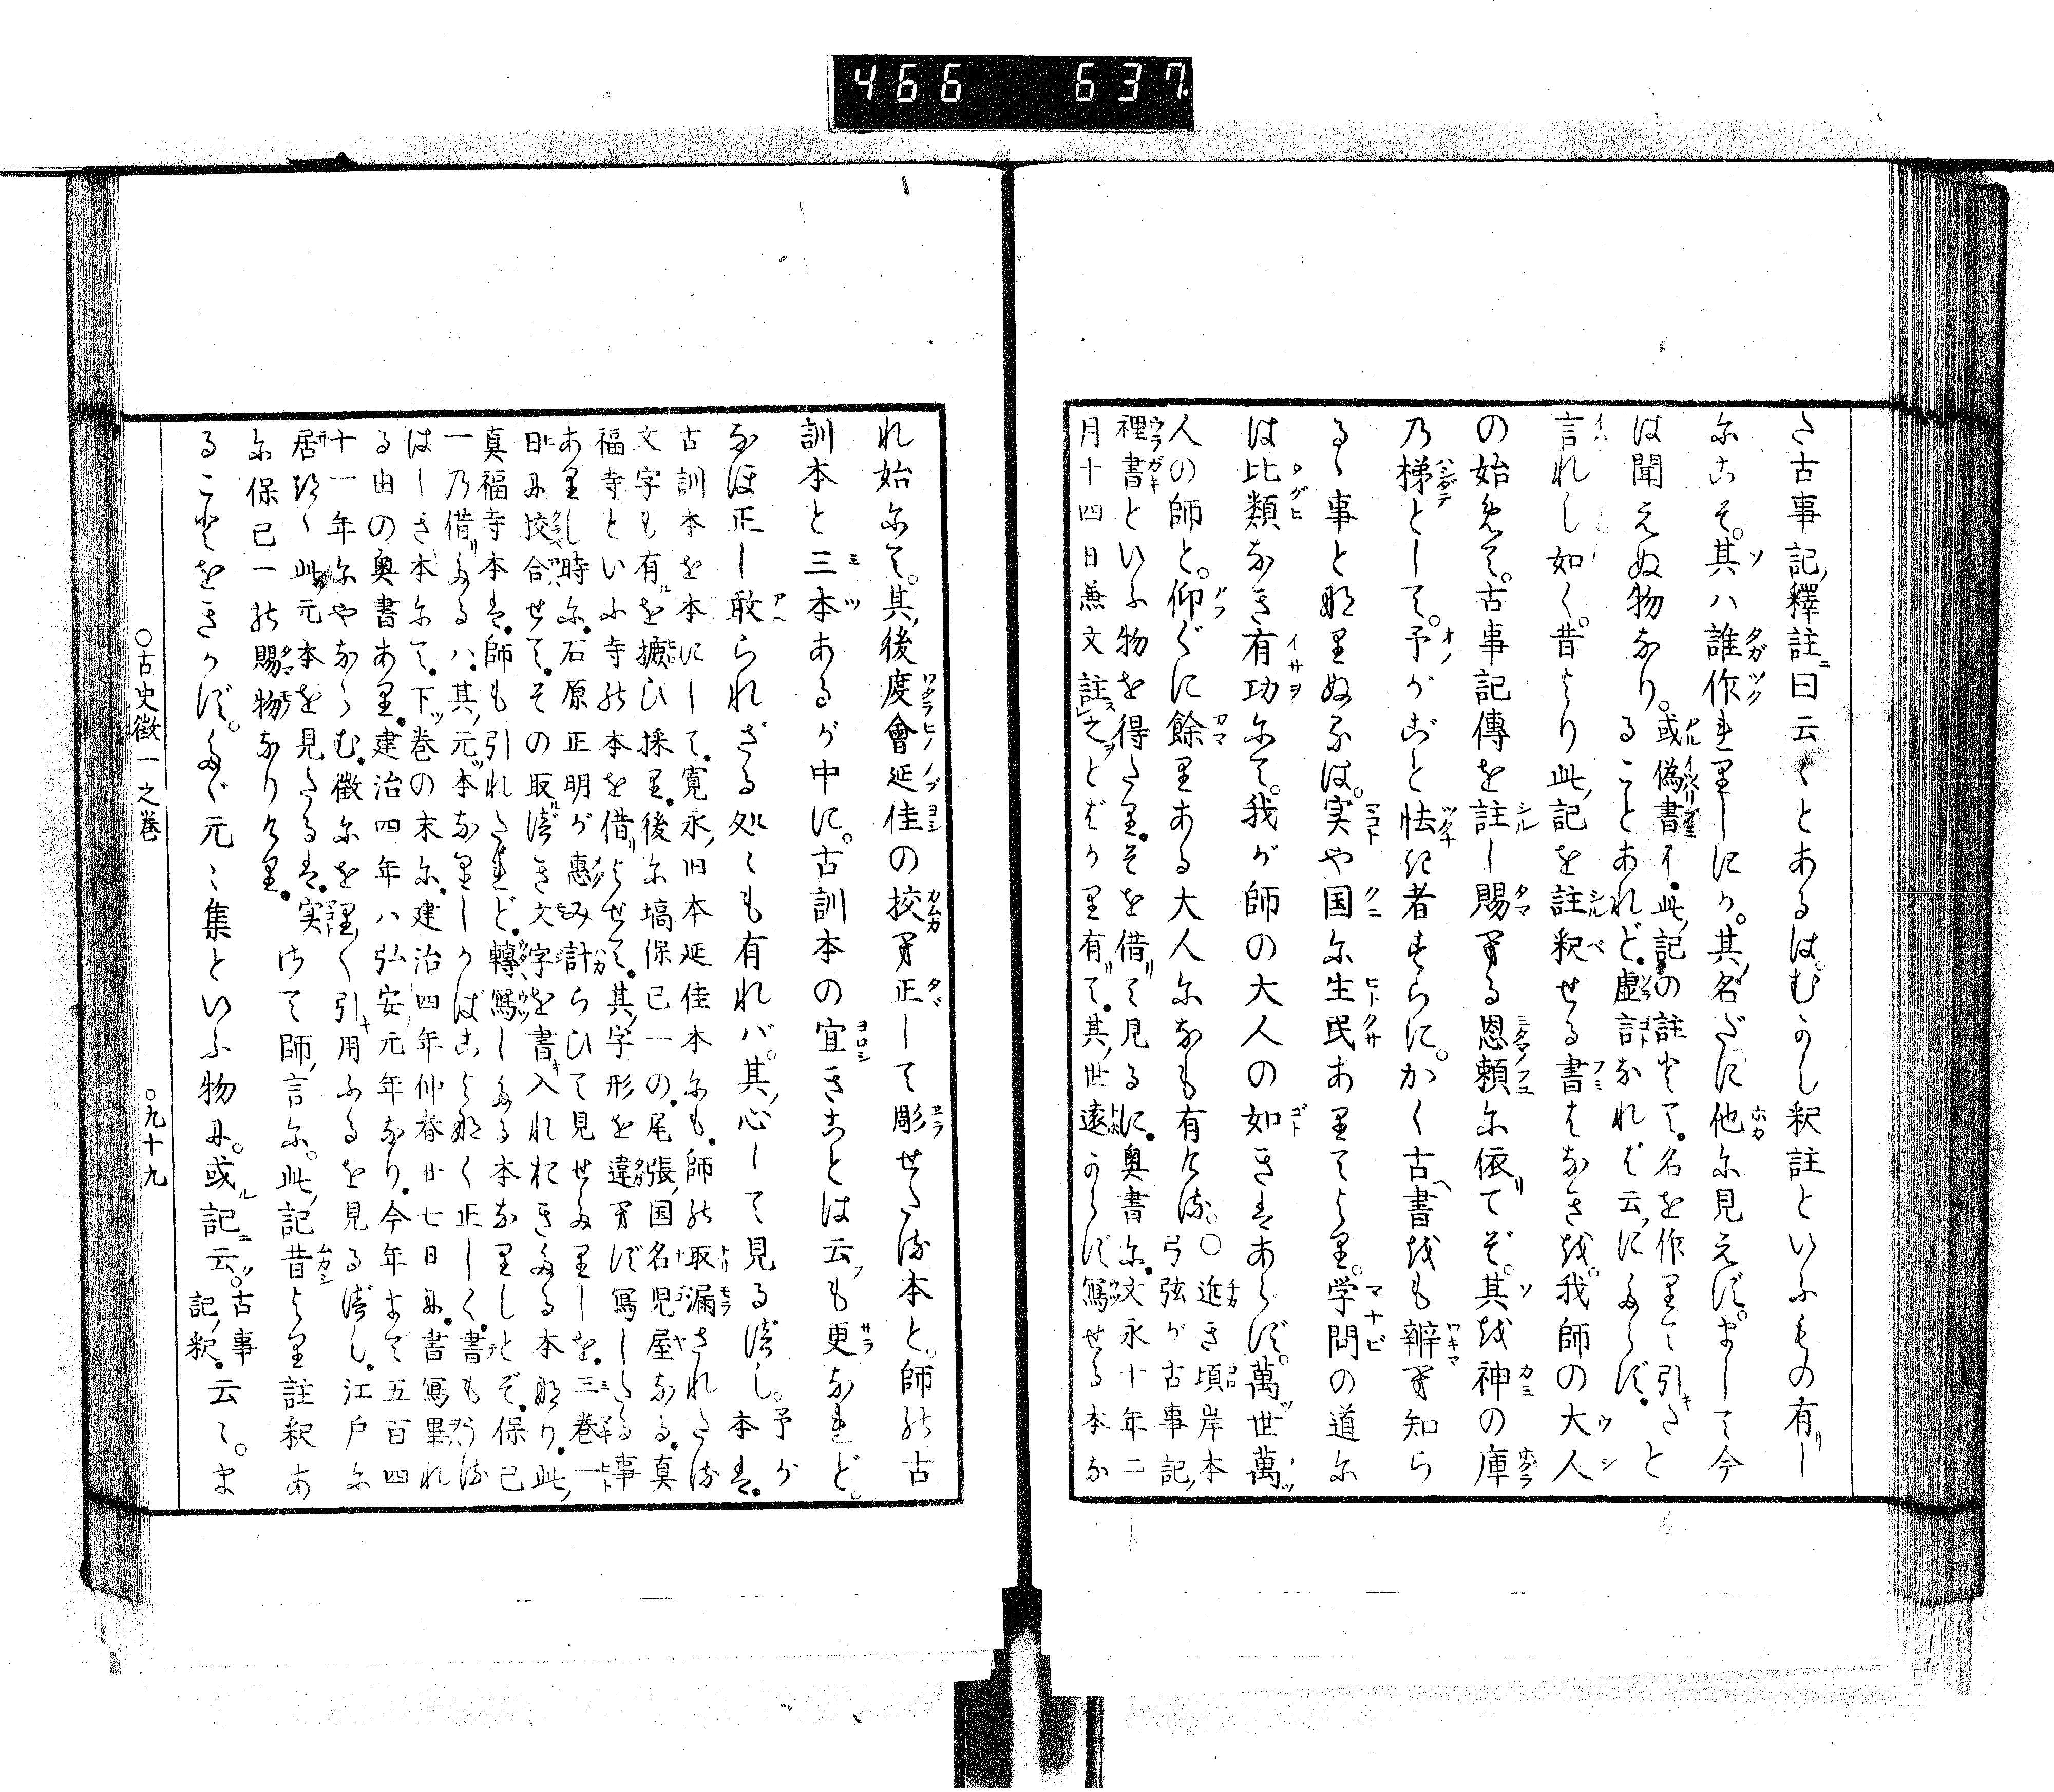 466 637.
た古事記釋註曰云々とあるは。むかし釈註といふもの有し
にこそ。其ハ誰作れりしにか。其名だに他に見えず。まして今
は聞えぬ物なり。
或偽書に。此記の註とて。名を作りて引たと
ることあれど。虚言なれば云にたらず。
言れし如く。昔より此記を註釈せる書はなきを。我師の大人
の始めて。古事記傳を註し賜へる恩頼に依てぞ。其を神の庫
乃梯として。予がごと怯き者すらに。かく古書をも辨へ知ら
るゝ事と那りぬるは。実や国に生民ありてより。学問の道に
は比類なき有功にて。我が師の大人の如きはあらず。萬世萬
人の師と。仰ぐに餘りある大人になも有ける。〇近き頃岸本
弓弦が古事記
裡書といふ物を得たり。そを借て見るに。奥書に。文永十年二
月十四日兼文註之とばかり有て。其世遠からず寫せる本な
れ始にて。其後度會延佳の挍へ正して彫せたる本と。師の古
訓本と三本あるが中に。古訓本の宜きことは云も更なれど。
なほ正し敢られざる処々も有れバ。其心して見るべし。予が
本は。
古訓本を本にして。寛永旧本延佳本にも。師の取漏されたる
文字も有を摭ひ採り。後に塙保己一の。尾張国名児屋なる。真
福寺といふ寺の本を借よせて。其字形を違へず寫したる事
ありし時に。石原正明が惠み計らひて見せたりしを。三巻一
日に挍合せて。その取べき文字を書入れおきたる本那り。此
真福寺本は。師も引れたれど。轉寫したる本なりしとぞ。保己
一乃借たるハ。其元本なりしかばこよ那く正しく。書もうる
はしき本にて。下巻の末に。建治四年仲春廿七日に。書寫畢れ
る由の奥書あり。建治四年ハ弘安元年なり。今年まで五百四
十一年にやならむ。徴にを裡く引用ふるを見るべし。江戸に
居つゝ此元本を見たるは。実
に保己一の賜物なりけり。
さて師言に。此記昔より註釈あ
ることをきかず。たゞ元々集といふ物に。或記云。古事
記釈。云々。ま
〇古史徴一之巻
〇九十九